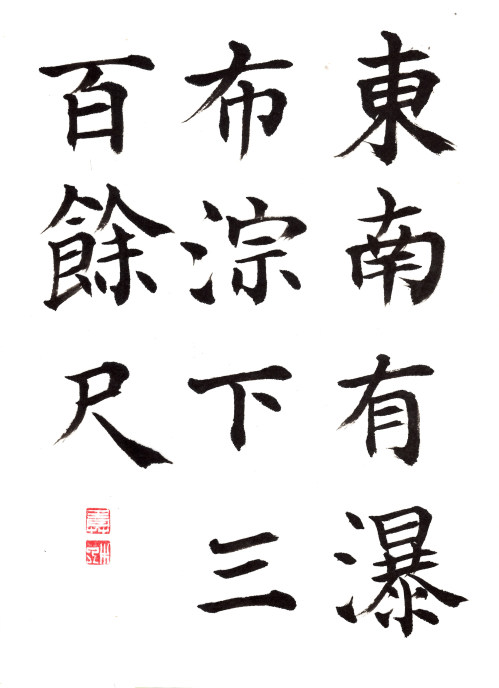 東南有瀑
布淙下三
百餘尺